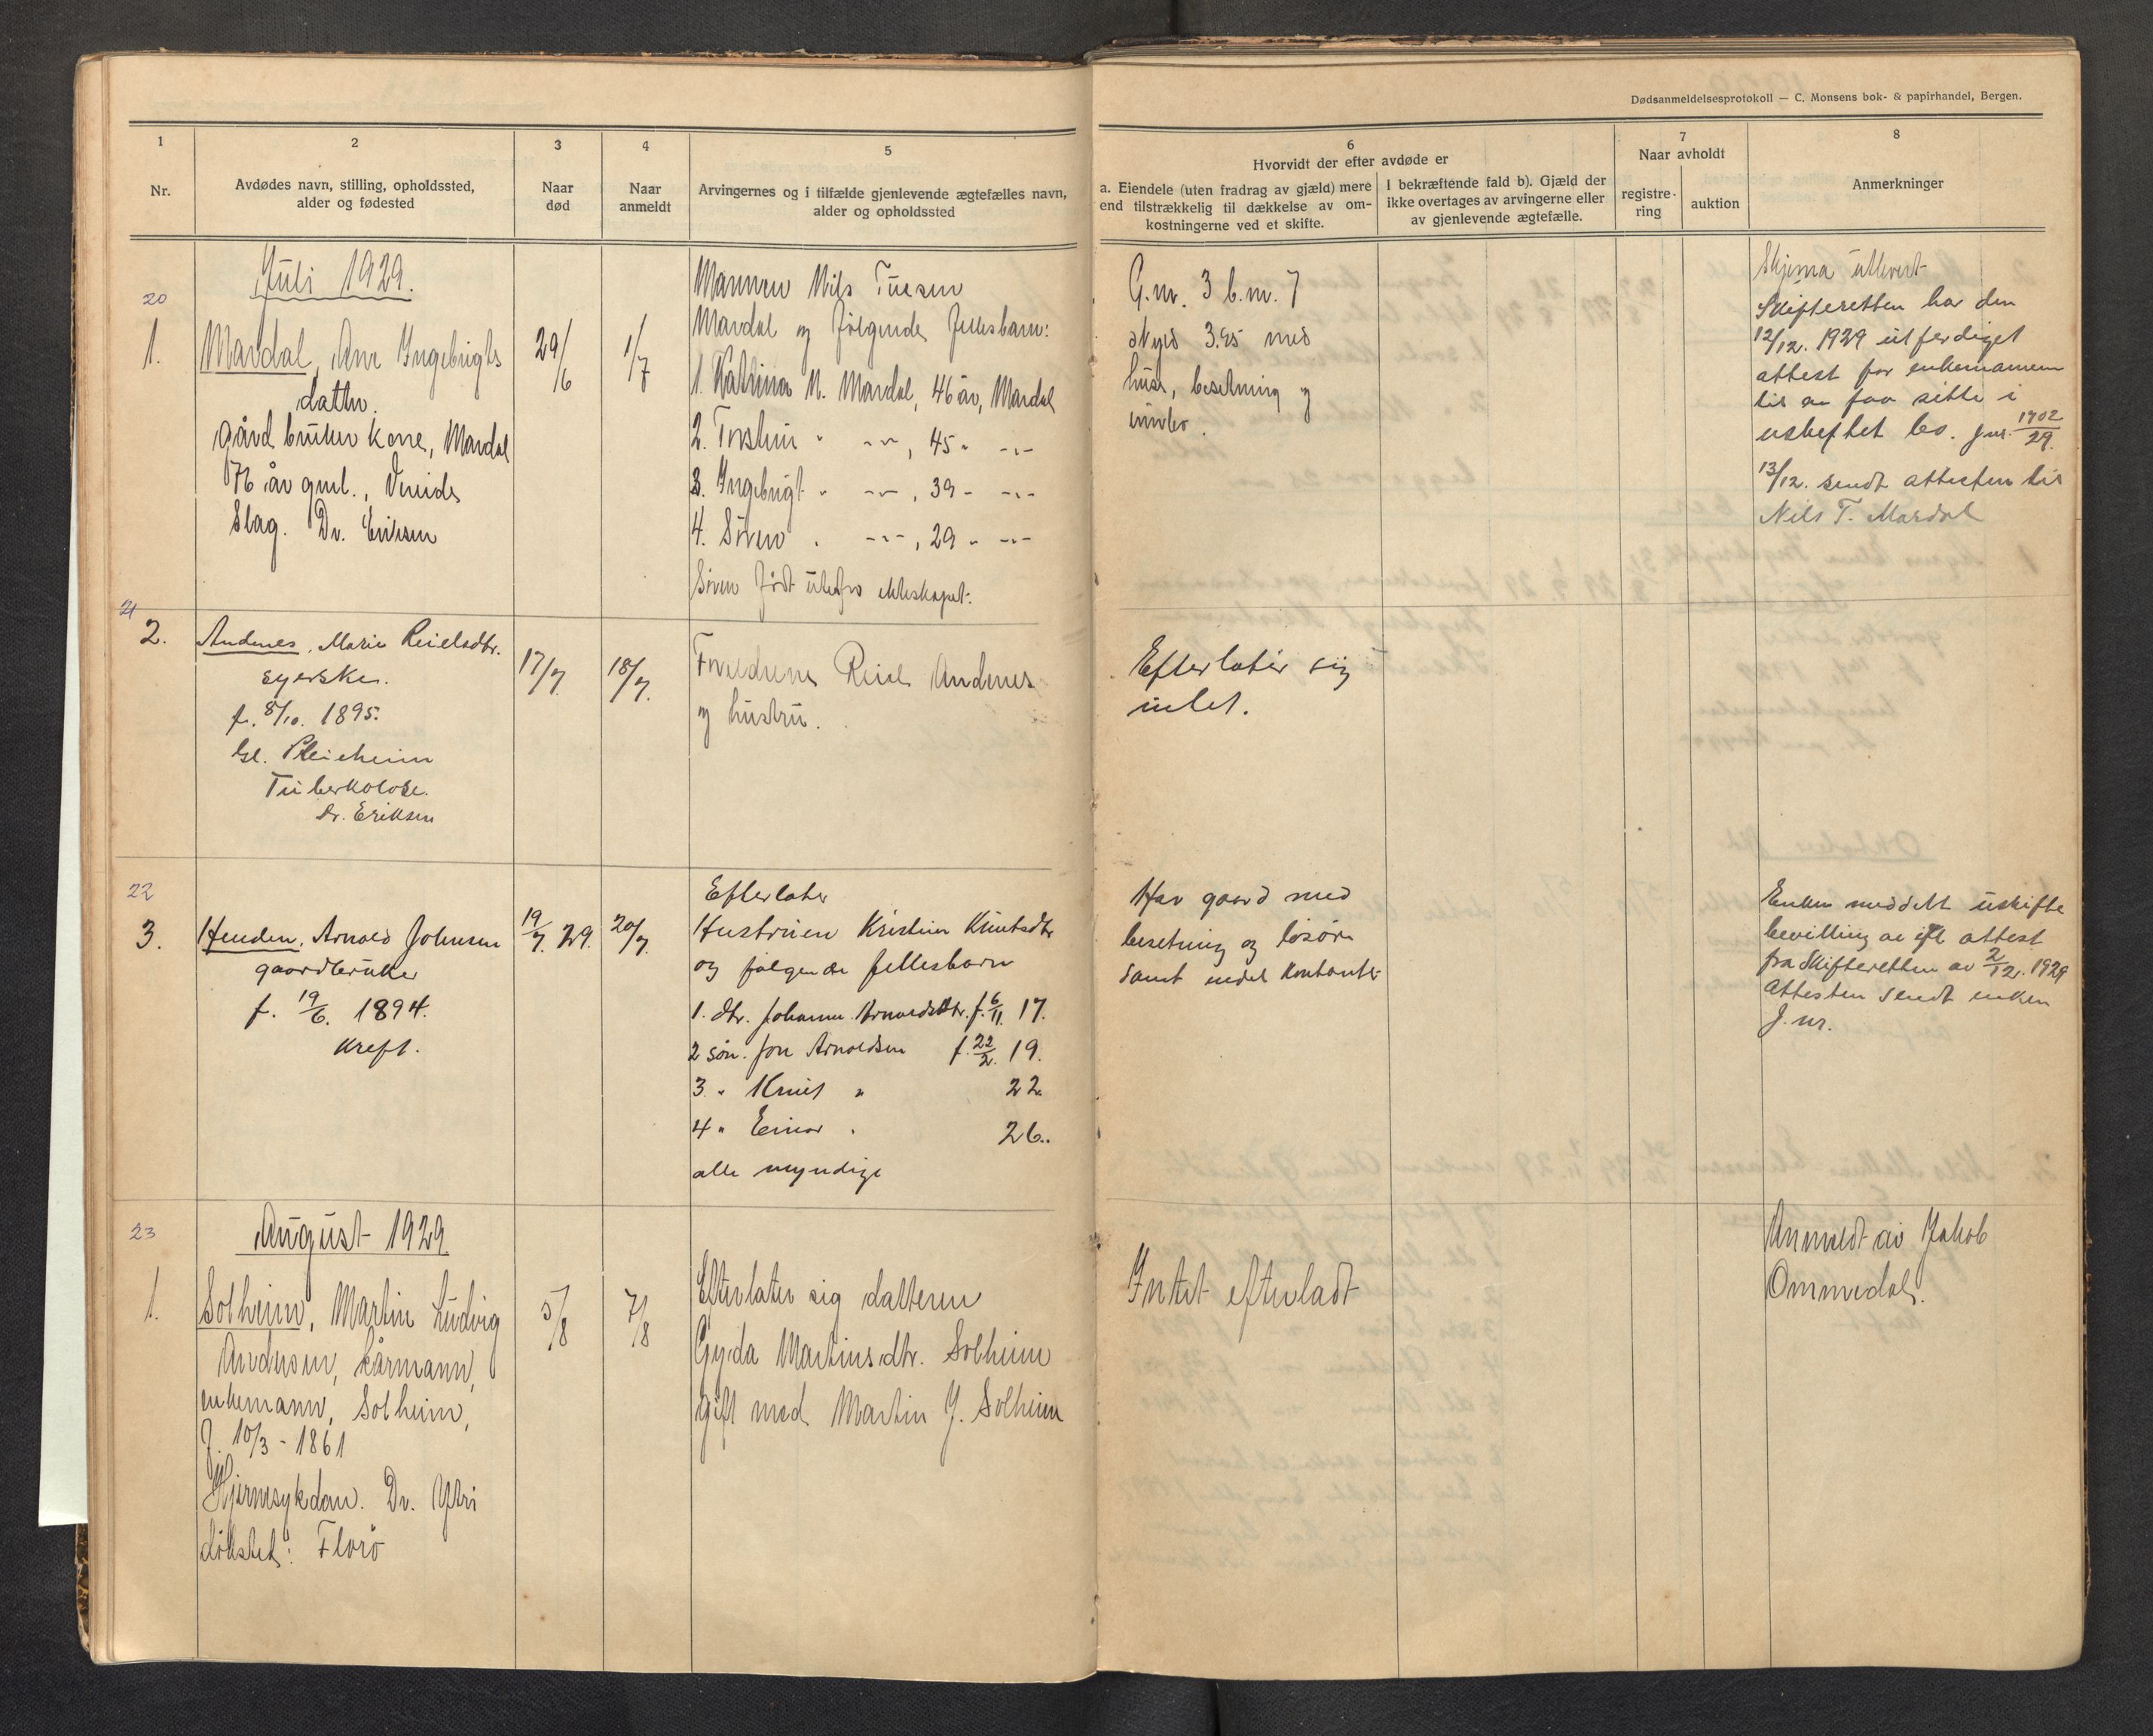 Dødsanmeldelsesprotokoll — C. Monsens bok- & papirhandel, Bergen.
1
Nr.
2
Avdødes navn, stilling, opholdssted,
alder og fødested
3
Naar
død
4
Naar
anmeldt
5
Arvingernes og i tilfælde gjenlevende ægtefælles navn,
alder og opholdssted
6
Hvorvidt der efter avdøde er
a. Eiendele (uten fradrag av gjæld) mere
end tilstrækkelig til dækkelse av om-
kostningerne ved et skifte.
I bekræftende fald b). Gjæld der
ikke overtages av arvingerne eller
av gjenlevende ægtefælle.
7
Naar avholdt
registre-
ring
auktion
8
Anmerkninger
Juli 1929.
20
1.
Mardal, Ane Ingebrigts
datter.
gårdbruker kone, Mardal
76 år gml., Vereide
Slag. Dr. Eriksen
29/6
1/7
Mannen Nils
Mardal og følgende fellesbarn:
1. Katrina N. Mardal, 46 år, Mardal
2. " -"-, 45 " -"-
3. Ingebrigt " -"-, 39 - -"-
4. Søren " -"-, 29 " -"-
Søren født utenfor ekteskapet.
G.nr. 3 b.nr. 7
skyld 3.25 med
hus, besetning og
innbo.
Skjema utlevert
Skifteretten har den
12/12. 1929 utferdiget
attest for enkemannen
til å faa sitte i
uskiftet bo. J.nr. 1702/29.
13/12. sendt attesten til
Nils T. Mardal
21
2.
Andenes, Marie Reielsdtr.
syerske.
f. 8/10. 1895.
Gl.
Tuberkolose.
Dr. Eriksen
17/7.
18/7.
Foreldrene Reiel Andenes
og hustru.
Efterlater sig
intet.
22
3.
Henden, Arnold Johnsen
gaardbruker
f. 19/6. 1894.
Kreft.
19/7. 29.
20/7.
Efterlater
Hustruen Kristine Knutsdtr
og følgende fellesbarn
1. dtr. Johanne Arnoldsdtr. f. 6/11. 17.
2 søn. Jon Arnoldsen f. 22/2. 19.
3. " Knut " 22.
4 " Einar " 26..
alle myndige
Har gaard med
besetning og løsøre
samt endel kontanter
Enken meddelt uskifte
bevilling av attest
fra Skifteretten av 2/12. 1929
Attesten sendt enken
J.nr.
23
August 1929
1.
Solheim, Martin Ludvig
Andersen, kårmann,
enkemann, Solheim,
f. 10/3 - 1861
Hjernesykdom. Dr. Ytri
dødsted: Florø
5/8
7/8
Efterlater sig datteren
Gyda Martinsdtr. Solheim
gift med Martin J. Solheim
Intet efterladt
Anmeldt av Jakob
Ommedal.